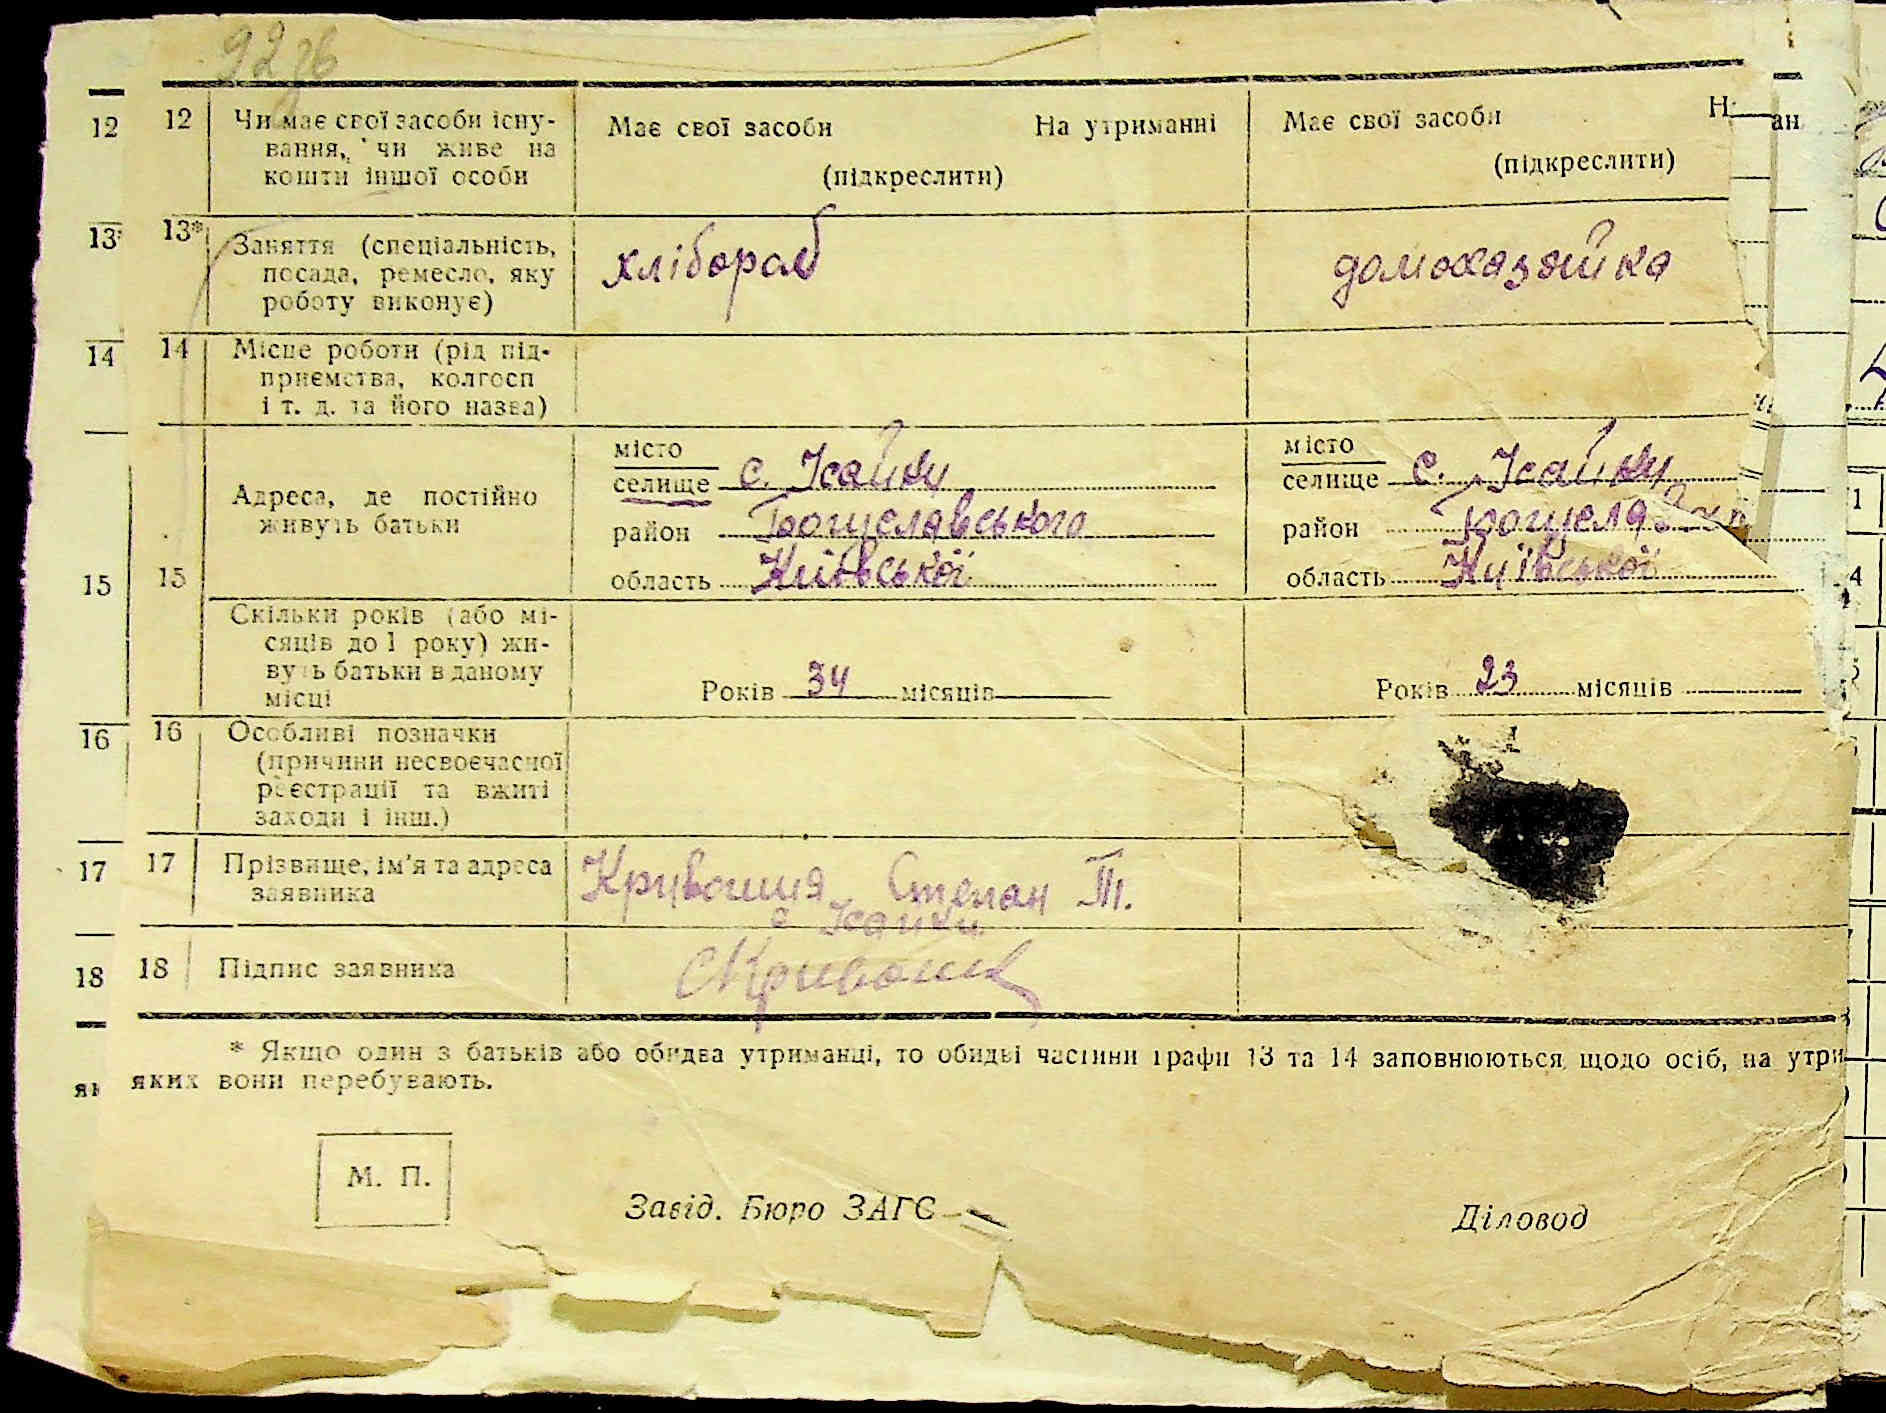 92 зв
12 12 Чи має свої засоби існу- Має свої засоби На утриманні Має свої засоби Н ан
вання, чи живе на (підкреслити) (підкреслити)
кошти іншої особи
13* 13* Заняття (спеціальність, хлібороб домохазяйка
посада, ремесло, яку
роботу виконує)
14 14 Місце роботи (рід під-
приємства, колгосп
і т. д. та його назва)
15 15 Адреса, де постійно
живуть батьки
місто
селище с. Ісайки
район Богуславського
область Київської
місто
селище с. Ісайки
район
область Київської
Скільки років (або мі-
сяців до 1 року) жи-
вуть батьки в даному
місці
Років 34 місяців Років 23 місяців
16 16 Особливі позначки
(причини несвоєчасної
реєстрації та вжиті
заходи і інш.)
17 17 Прізвище, ім'я та адреса Кривошия Степан Т.
заявника с Ісайки
18 18 Підпис заявника СКривошия
* Якщо один з батьків або обидва утриманці, то обидві частини графи 13 та 14 заповнюються щодо осіб, на утри
як яких вони перебувають.
М. П.
Завід. Бюро ЗАГС Діловод